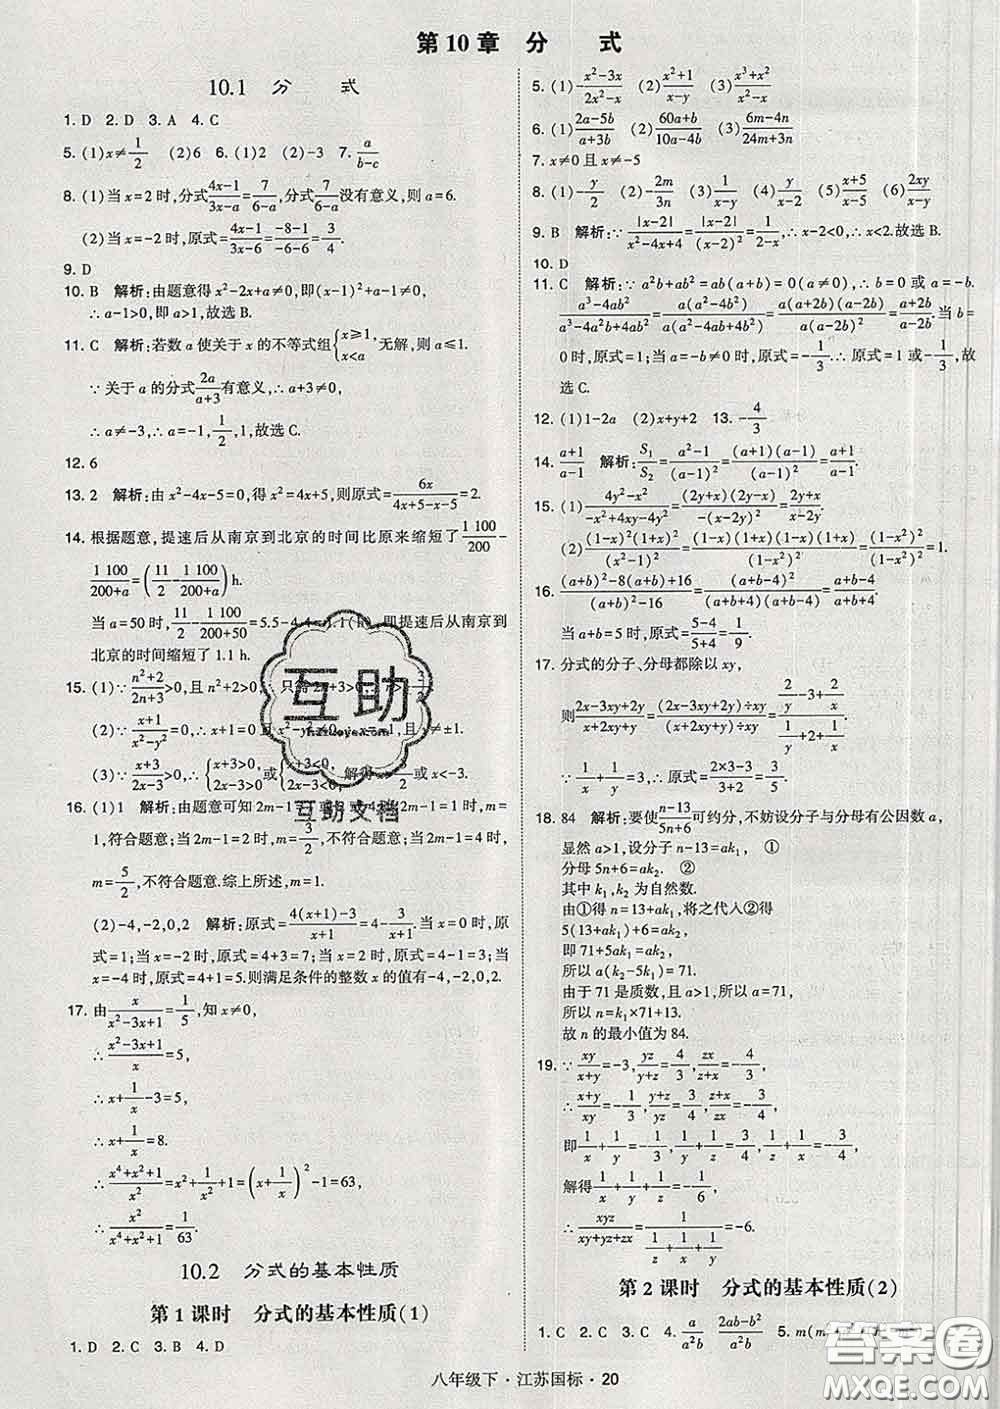 第10章 分 式
10.1 分 式
1. D 2. D 3. A 4. C
5. (1)x≠1/2 (2)6 6. (1)2 (2)-3 7. a/(b-c)
8. (1)当 x=2 时,分式(4x-1)/(3x-a)=7/(6-a),分式7/(6-a)没有意义,所以 a=6.
(2)当 x=-2 时,原式=(4x-1)/(3x-6)=(-8-1)/(-6-6)=3/4.
9. D
10. B 解析:由题意得 x²-2x+a≠0,即(x-1)²+a-1≠0,
∴a-1>0,即 a>1,故选 B.
11. C 解析:若数 a 使关于 x 的不等式组{x≥1, x<a},无解,则 a≤1.
∵关于 a 的分式2a/(a+3)有意义,∴a+3≠0,
∴a≠-3,∴a=-1,1/2,1,故选 C.
12. 6
13. 2 解析:由 x²-4x-5=0,得 x²=4x+5,则原式=6x/(4x+5-x-5)=2.
14. 根据题意,提速后从南京到北京的时间比原来缩短了1 100/200-
1 100/(200+a)=(11/2-1 100/(200+a)) h.
当 a=50 时,11/2-1 100/(200+50)=5.5-4.4=1.1(h),即提速后从南京到
北京的时间缩短了 1.1 h.
15. (1)∵(n²+2)/(2n+3)>0,且 n²+2>0,∴只需 2n+3>0
(2)∵(x+1)/(x²-y²)=0,∴x+1=0 且 x²-y²≠0,∴x=-1,且 y≠±1.
(3)∵(x+3)/(2x-3)>0,∴{x+3>0, 2x-3>0}或{x+3<0, 2x-3<0},解得 x>3/2或 x<-3.
16. (1)1 解析:由题意可知 2m-1=1 或 2 或 4,当 2m-1=1 时,m=
1,符合题意;当 2m-1=2 时,m=3/2,不符合题意;当 2m-1=4 时,
m=5/2,不符合题意.综上所述,m=1.
(2)-4,-2,0,2 解析:原式=(4(x+1)-3)/(x+1)=4-3/(x+1).当 x=0 时,原
式=1;当 x=-2 时,原式=4+3=7;当 x=2 时,原式=4-1=3;当
x=-4 时,原式=4+1=5.则满足条件的整数 x 的值有-4,-2,0,2.
17. 由x/(x²-3x+1)=1/5,知 x≠0,
∴(x²-3x+1)/x=5,
∴x+1/x-3=5,
∴x+1/x=8.
∴(x⁴+x²+1)/x²=x²+1/x²+1=(x+1/x)²-1=63,
∴x²/(x⁴+x²+1)=1/63.
10.2 分式的基本性质
第 1 课时 分式的基本性质(1)
1. D 2. C 3. B 4. D
5. (1)-(x²-3x)/(2x²-x) (2)(x²+1)/(x-2) (3)(x³+x²)/(x²-x)
6. (1)(2a-5b)/(a+3b) (2)(60a+b)/(10a-4b) (3)(6m-4n)/(24m+3n)
7. x≠0 且 x≠-5
8. (1)-y/2 (2)-2m/3n (3)1/(x-y) (4)y/(x-2) (5)(x+5)/(x-5) (6)2xy/(x-y)
9. B 解析:∵|x-2|/(x²-4x+4)=|x-2|/(x-2)²=1/(2-x),∴x-2<0,∴x<2.故选 B.
10. D
11. C 解析:∵a²b+ab²=ab(a+b)=0(a≠0),∴b=0 或 a=-b.
(a³-4ab²)/(a³-4a²b+4ab²)=a(a²-4b²)/a(a²-4ab+4b²)=a(a+2b)(a-2b)/a(a-2b)²=(a+2b)/(a-2b).当 b=
0时,原式=1;当 a=-b≠0 时,原式=-1/3.∴原式=1 或-1/3,故
选 C.
12. (1)1-2a (2)x+y+2 13. -4/3
14. (a+1)/(a-1) 解析:S₁/S₂=(a²-1)/(a-1)²=(a+1)(a-1)/(a-1)²=(a+1)/(a-1).
15. (1)(4y²-x²)/(-x²+4xy-4y²)=(2y+x)(2y-x)/-(x-2y)²=(2y+x)/(x-2y).
(2)(1-x)²(1+x)²/(x²-1)²=(1-x)(1+x)(1-x)(1+x)/(1-x²)²=(1-x²)²/(1-x²)²=1.
16. ((a+b)²-8(a+b)+16)/((a+b)²-16)=(a+b-4)²/(a+b+4)(a+b-4)=(a+b-4)/(a+b+4).
当 a+b=5 时,原式=(5-4)/(5+4)=1/9.
17. 分式的分子、分母都除以 xy,
则(2x-3xy+2y)/(x+2xy+y)=(2x-3xy+2y)÷xy/(x+2xy+y)÷xy=(2/y-3+2/x)/(1/y+2+1/x).
∵1/x+1/y=3,∴原式=(2×3-3)/(3+2)=3/5.
18. 84 解析:要使(n-13)/(5n+6)可约分,不妨设分子与分母有公因数 a,
显然 a>1,设分子 n-13=ak₁, ①
分母 5n+6=ak₂. ②
其中 k₁,k₂ 为自然数.
由①得 n=13+ak₁,将之代入②得
5(13+ak₁)+6=ak₂,
即 71+5ak₁=ak₂,
所以 a(k₂-5k₁)=71.
由于 71 是质数,且 a>1,所以 a=71,
所以 n=k₁×71+13.
故 n 的最小值为 84.
19. ∵xy/(x+y)=-3,yz/(y+z)=4/3,zx/(z+x)=-4/3,
∴(x+y)/xy=-1/3,(y+z)/yz=3/4,(z+x)/zx=-3/4,
即1/x+1/y=-1/3,1/y+1/z=3/4,1/z+1/x=-3/4,
解得1/x+1/y+1/z=-1/6,
∴xyz/(xy+yz+zx)=1/(1/z+1/x+1/y)=-6.
第 2 课时 分式的基本性质(2)
1. C 2. C 3. C 4. a/a²b² (2ab-b²)/a²b² 5. m(m
八年级下·江苏国标·20
互助
互助文档
答案圈
MXQE.COM